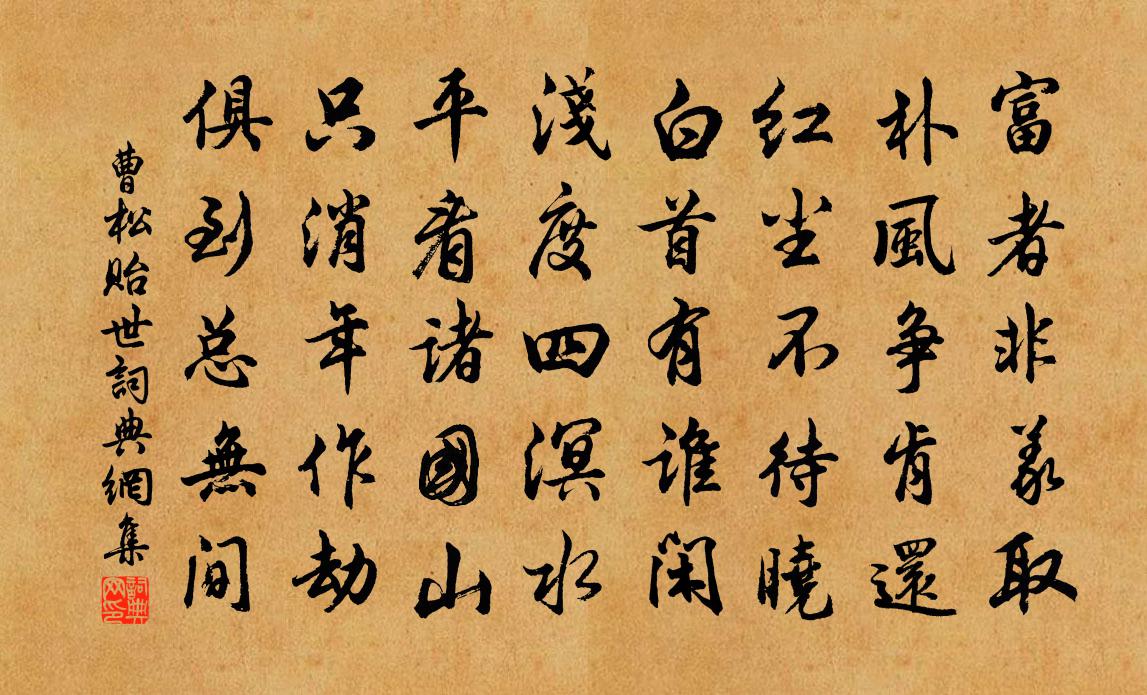 富者非義取
朴風爭肯還
紅塵不待曉
白首有誰閑
淺度四溟水
平看諸國山
只消年作劫
俱到總無間
曹松貽世詞典網集
詞典網印